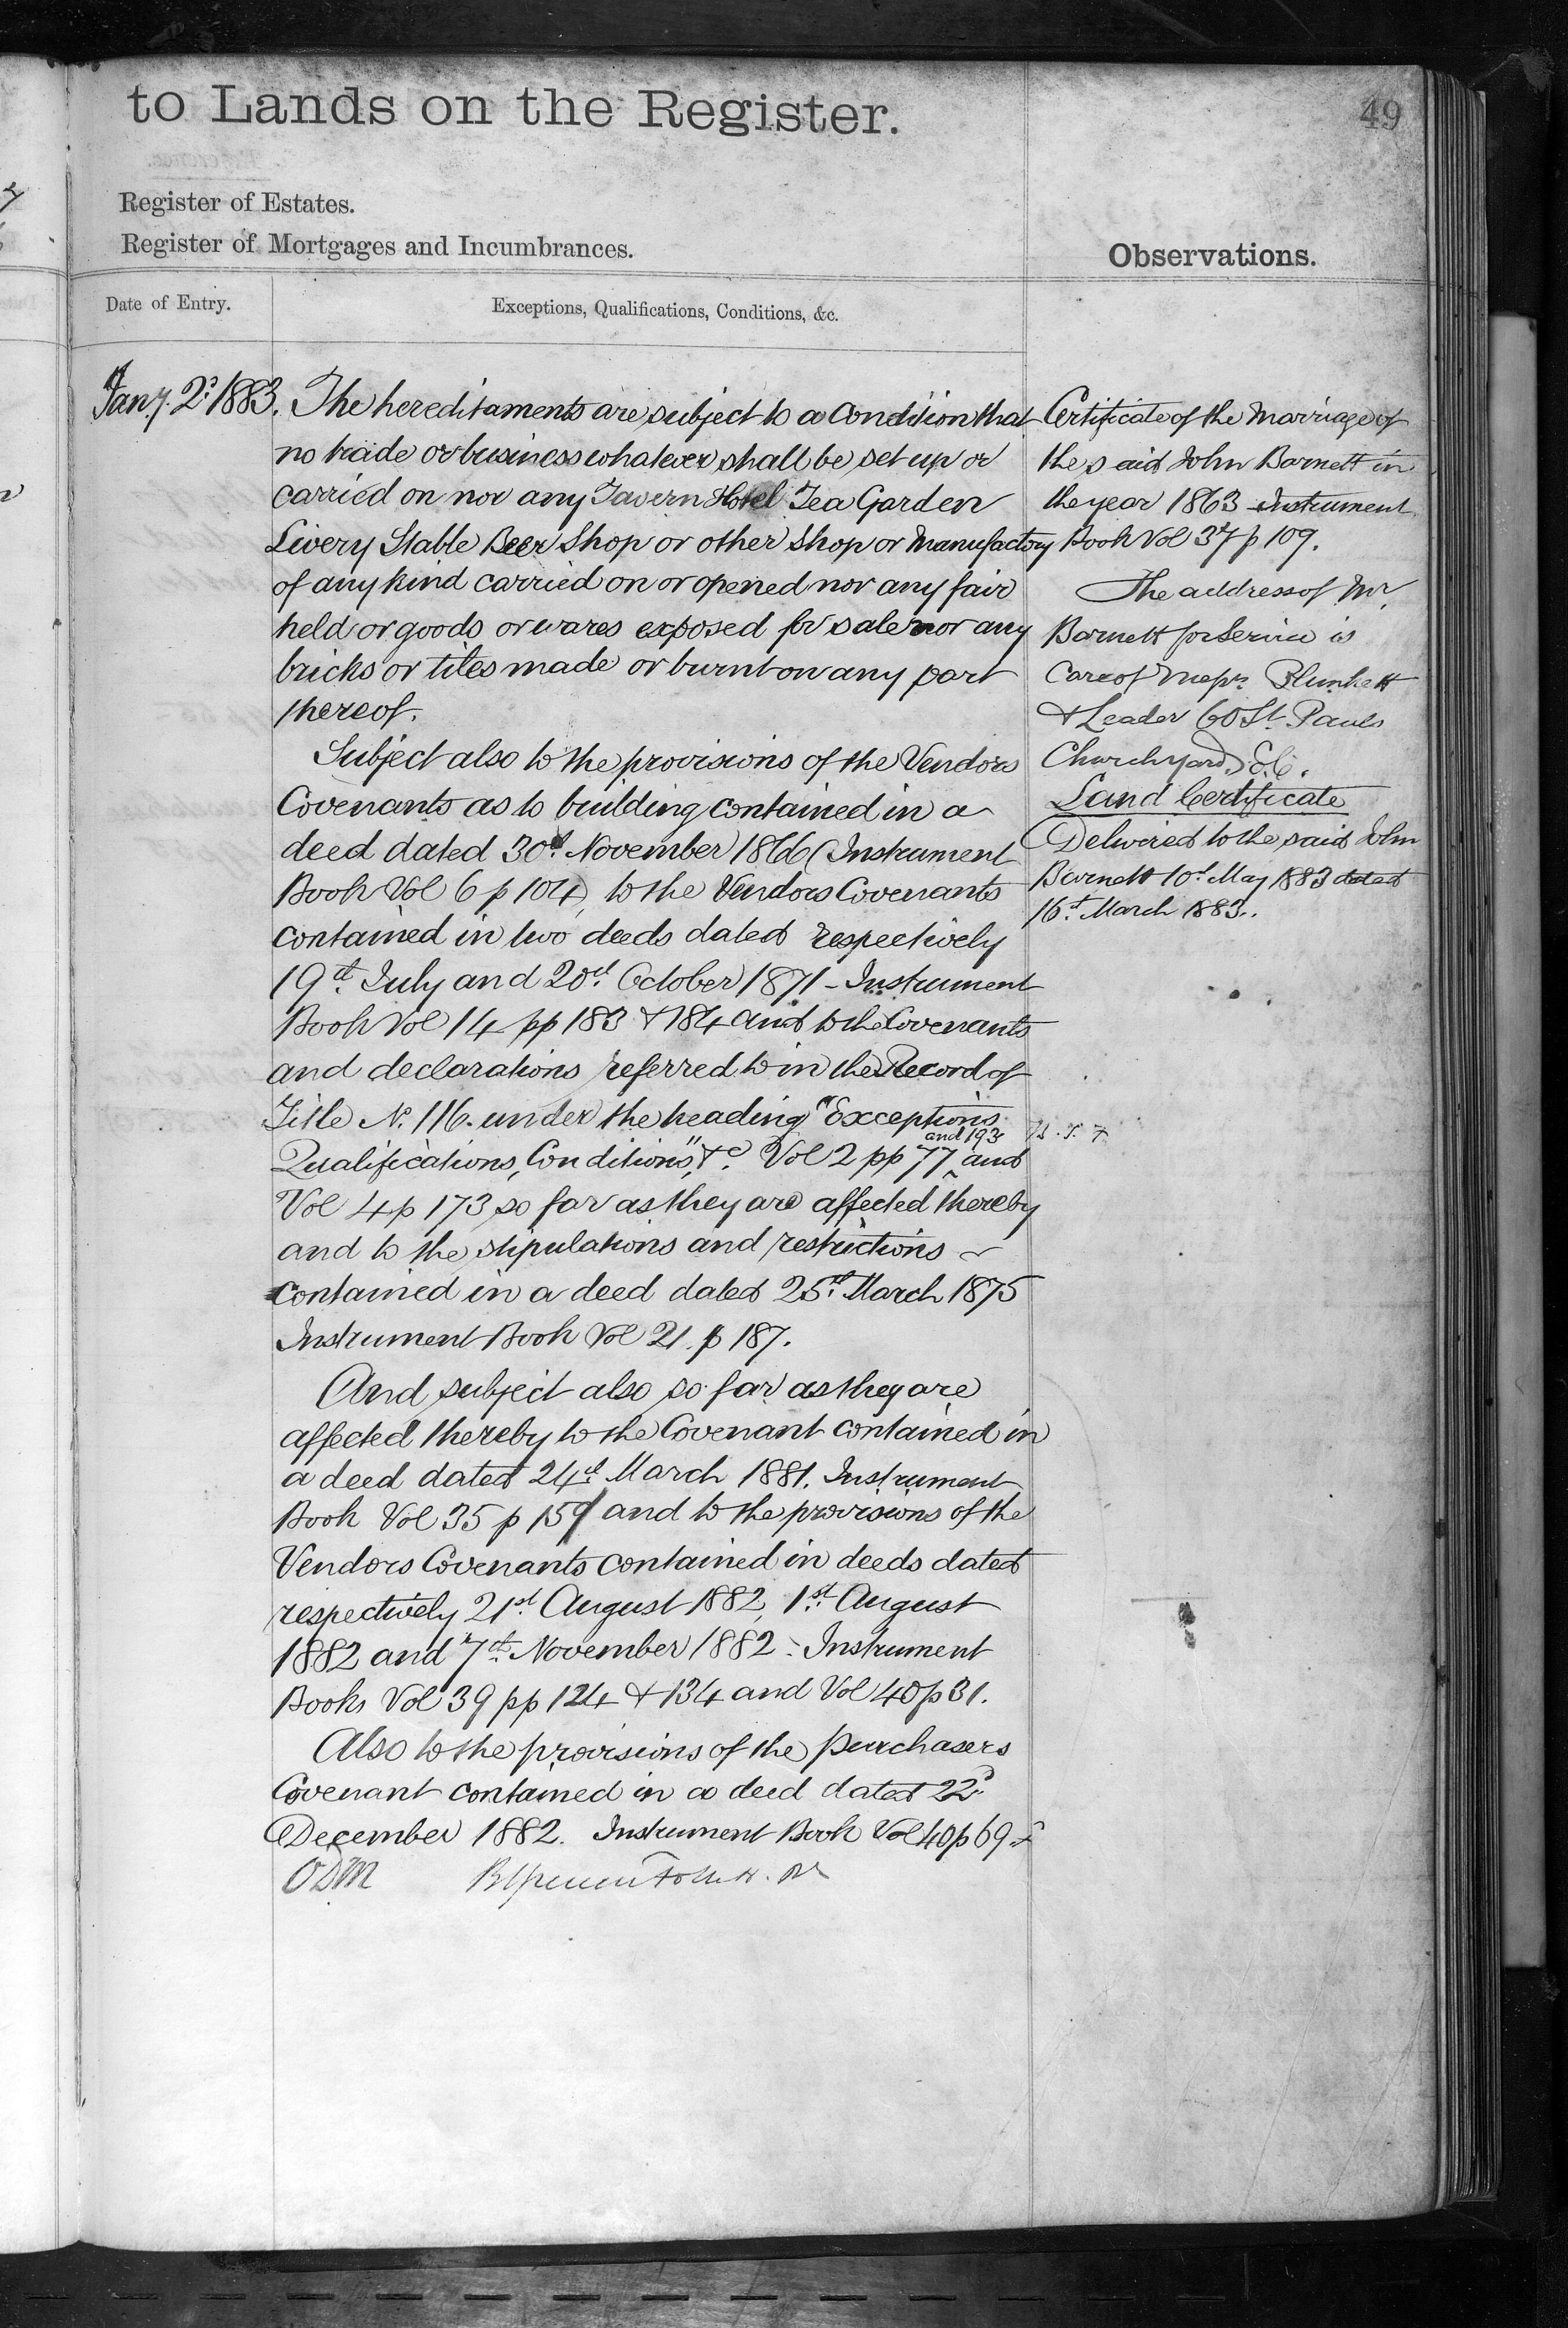 to Lands on the Register.
49
Register of Estates.
Register of Mortgages and Incumbrances.
Observations.
Date of Entry.
Exceptions, Qualifications, Conditions, &c.
Jany. 2d 1883.
The hereditaments are subject to a Condition that
no trade or business whatever shall be set up or
carried on nor any Tavern Hotel Tea Garden
Livery Stable Beer Shop or other Shop or Manufactory
of any kind carried on or opened nor any fair
held or goods or wares exposed for sale nor any
bricks or tiles made or burnt on any part
thereof.
Subject also to the provisions of the Vendors
Covenants as to building contained in a
deed dated 30th November 1866 (Instrument
Book Vol 6 p 104), to the Vendors Covenants
contained in two deeds dated respectively
19th July and 20th October 1871 - Instrument
Book Vol 14 pp 183 & 184 and to the Covenants
and declarations referred to in the Record of
Title No. 116. under the heading "Exceptions
Qualifications, Conditions", &c. Vol 2 pp 77 and 193 and
Vol 4 p 173 so far as they are affected thereby
and to the stipulations and restrictions
contained in a deed dated 25th March 1875
Instrument Book Vol 21 p 187.
And subject also so far as they are
affected thereby to the Covenant contained in
a deed dated 24th March 1881. Instrument
Book Vol 35 p 159 and to the provisions of the
Vendors Covenants contained in deeds dated
respectively 21st August 1882, 1st August
1882 and 7th November 1882 - Instrument
Books Vol 39 pp 124 & 134 and Vol 40 p 31.
Also to the provisions of the Purchasers
Covenant contained in a deed dated 22d
December 1882. Instrument Book Vol 40 p 69
Certificate of the Marriage of
the said John Barnett in
the year 1863 Instrument
Book Vol 37 p 109.
The address of Mr.
Barnett for Service is
Care of Messrs. Plunkett
& Leader 60 St. Pauls
Churchyard, E.C.
Land Certificate
Delivered to the said John
Barnett 10th May 1883 dated
16th March 1883.